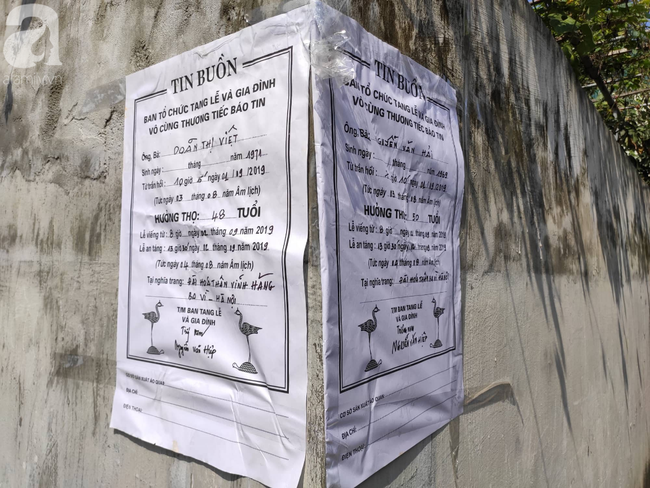 aFamily
TIN BUỒN
BAN TỔ CHỨC TANG LỄ VÀ GIA ĐÌNH
VÔ CÙNG THƯƠNG TIẾC BÁO TIN
Ông, Bà: DOÃN THỊ VIỆT
Sinh ngày: tháng năm 1971
Từ trần hồi: 10 giờ ngày 01/09/2019
(Tức ngày 03 tháng 08 năm Âm lịch)
HƯỞNG THỌ: 48 TUỔI
Lễ viếng từ: 8 giờ 02.09.2019
Lễ an táng: giờ 30 2019
(Tức ngày 04 tháng 08 năm Âm lịch)
Tại nghĩa trang: ĐÀI HOÁ THÂN VĨNH HẰNG
BA VÌ - HÀ NỘI
T/M BAN TANG LỄ
VÀ GIA ĐÌNH
Nguyễn Văn Hiệp
CƠ SỞ SẢN XUẤT ÁO QUAN
ĐỊA CHỈ:
ĐIỆN THOẠI:
TIN BUỒN
BAN TỔ CHỨC TANG LỄ VÀ GIA ĐÌNH
VÔ CÙNG THƯƠNG TIẾC BÁO TIN
Ông, Bà: NGUYỄN VĂN HẢI
Sinh ngày: tháng năm
Từ trần hồi: giờ ngày 01/09/2019
(Tức ngày 03 tháng 08 năm Âm lịch)
HƯỞNG THỌ: TUỔI
Lễ viếng từ: 8 giờ 2019
Lễ an táng: giờ 30 2019
(Tức ngày 04 tháng 08 năm Âm lịch)
Tại nghĩa trang: ĐÀI HOÁ THÂN
T/M BAN TANG LỄ
VÀ GIA ĐÌNH
NGUYỄN VĂN HIỆP
CƠ SỞ SẢN XUẤT ÁO QUAN
ĐỊA CHỈ:
ĐIỆN THOẠI: